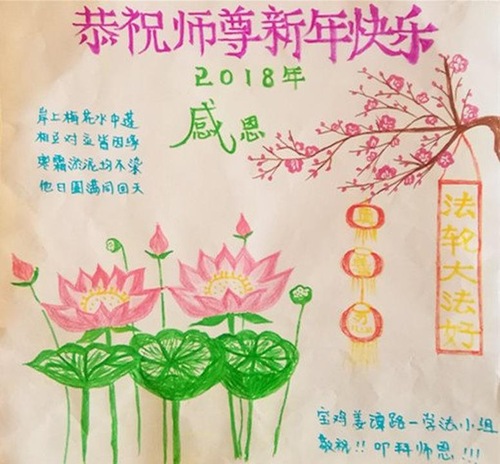 恭祝师尊新年快乐
2018年
感恩
岸上梅花水中莲
相互对立皆因缘
寒霜淤泥均不染
他日圆满同回天
法轮大法好
宝鸡姜谭路一学法小组
敬祝!! 叩拜师恩!!!